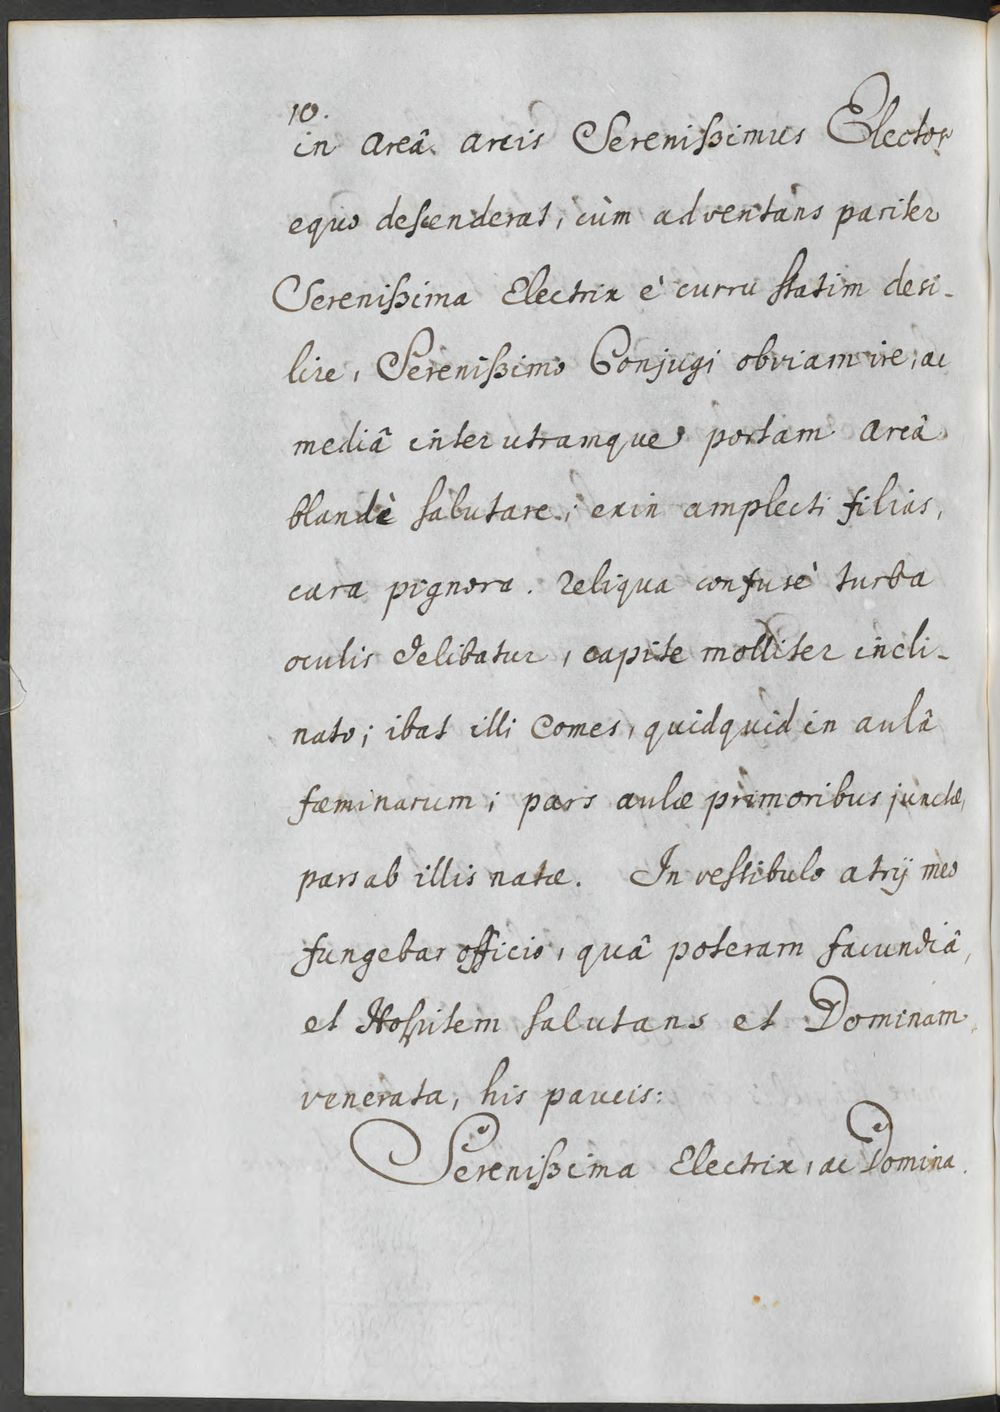 10.
in areâ arcis Serenißimus Elector
equo descenderat, cùm adventans pariter
Serenißima Electrix è curru statim desi-
lire, Serenißimo Conjugi obviam ire, ac
mediâ inter utramque portam areâ
blandè salutare; exin amplecti filias,
cara pignora. reliqua confusè turba
oculis delibatur, capite molliter incli-
nato; ibat illi Comes, quidquid in aulâ
fœminarum; pars aulæ primoribus junctæ,
pars ab illis natæ. In vestibulo atrij meo
fungebar officio, quâ poteram facundiâ,
et Hospitem salutans et Dominam
venerata, his paucis:
Serenißima Electrix, ac Domina.